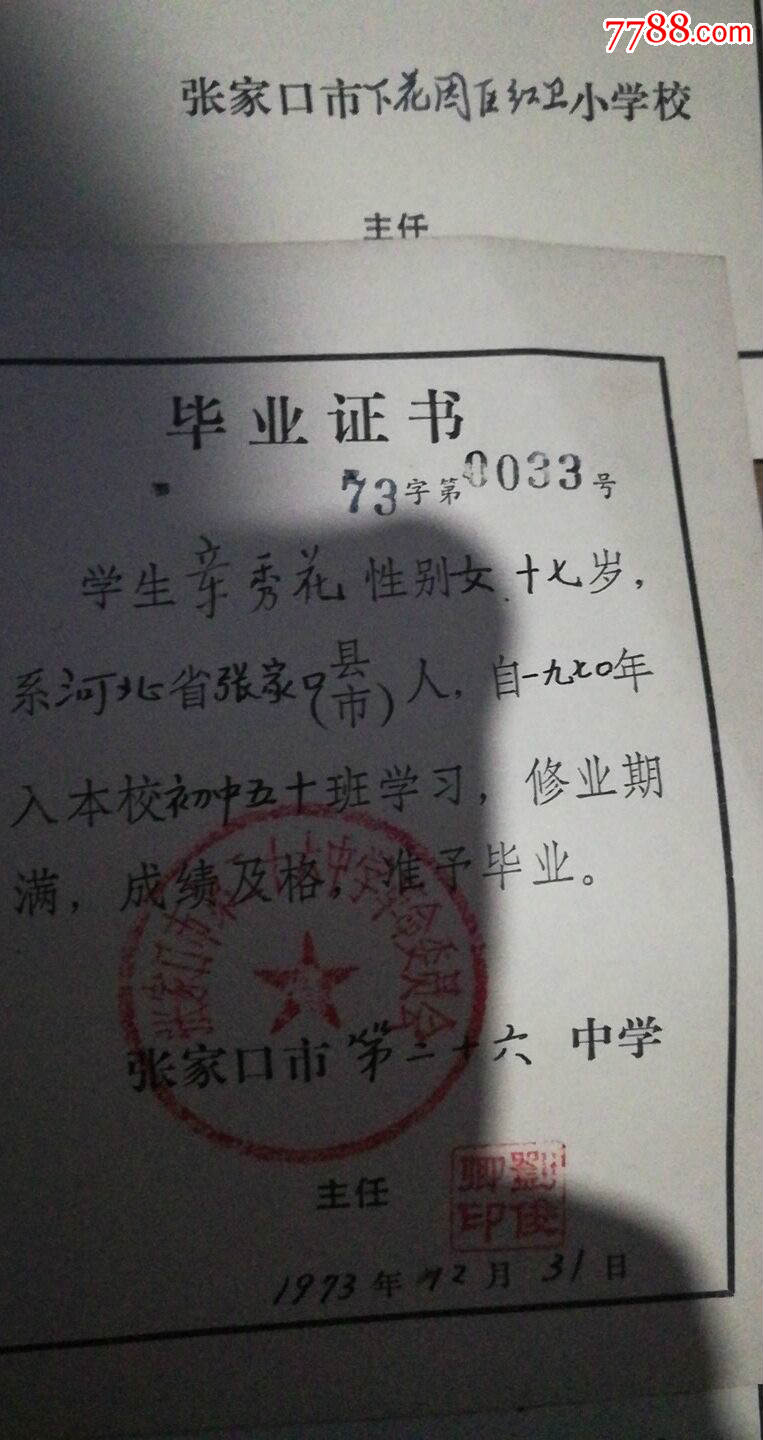 7788.com
张家口市下花园区红卫小学校
主任
毕业证书
73字第0033号
学生辛秀花 性别女 十七岁,
系河北省张家口(县市)人,自一九七〇年
入本校初中五十班学习,修业期
满,成绩及格,准予毕业。
张家口市第二十六中学革命委员会
张家口市第二十六中学
主任
劉俊卿印
1973年12月31日